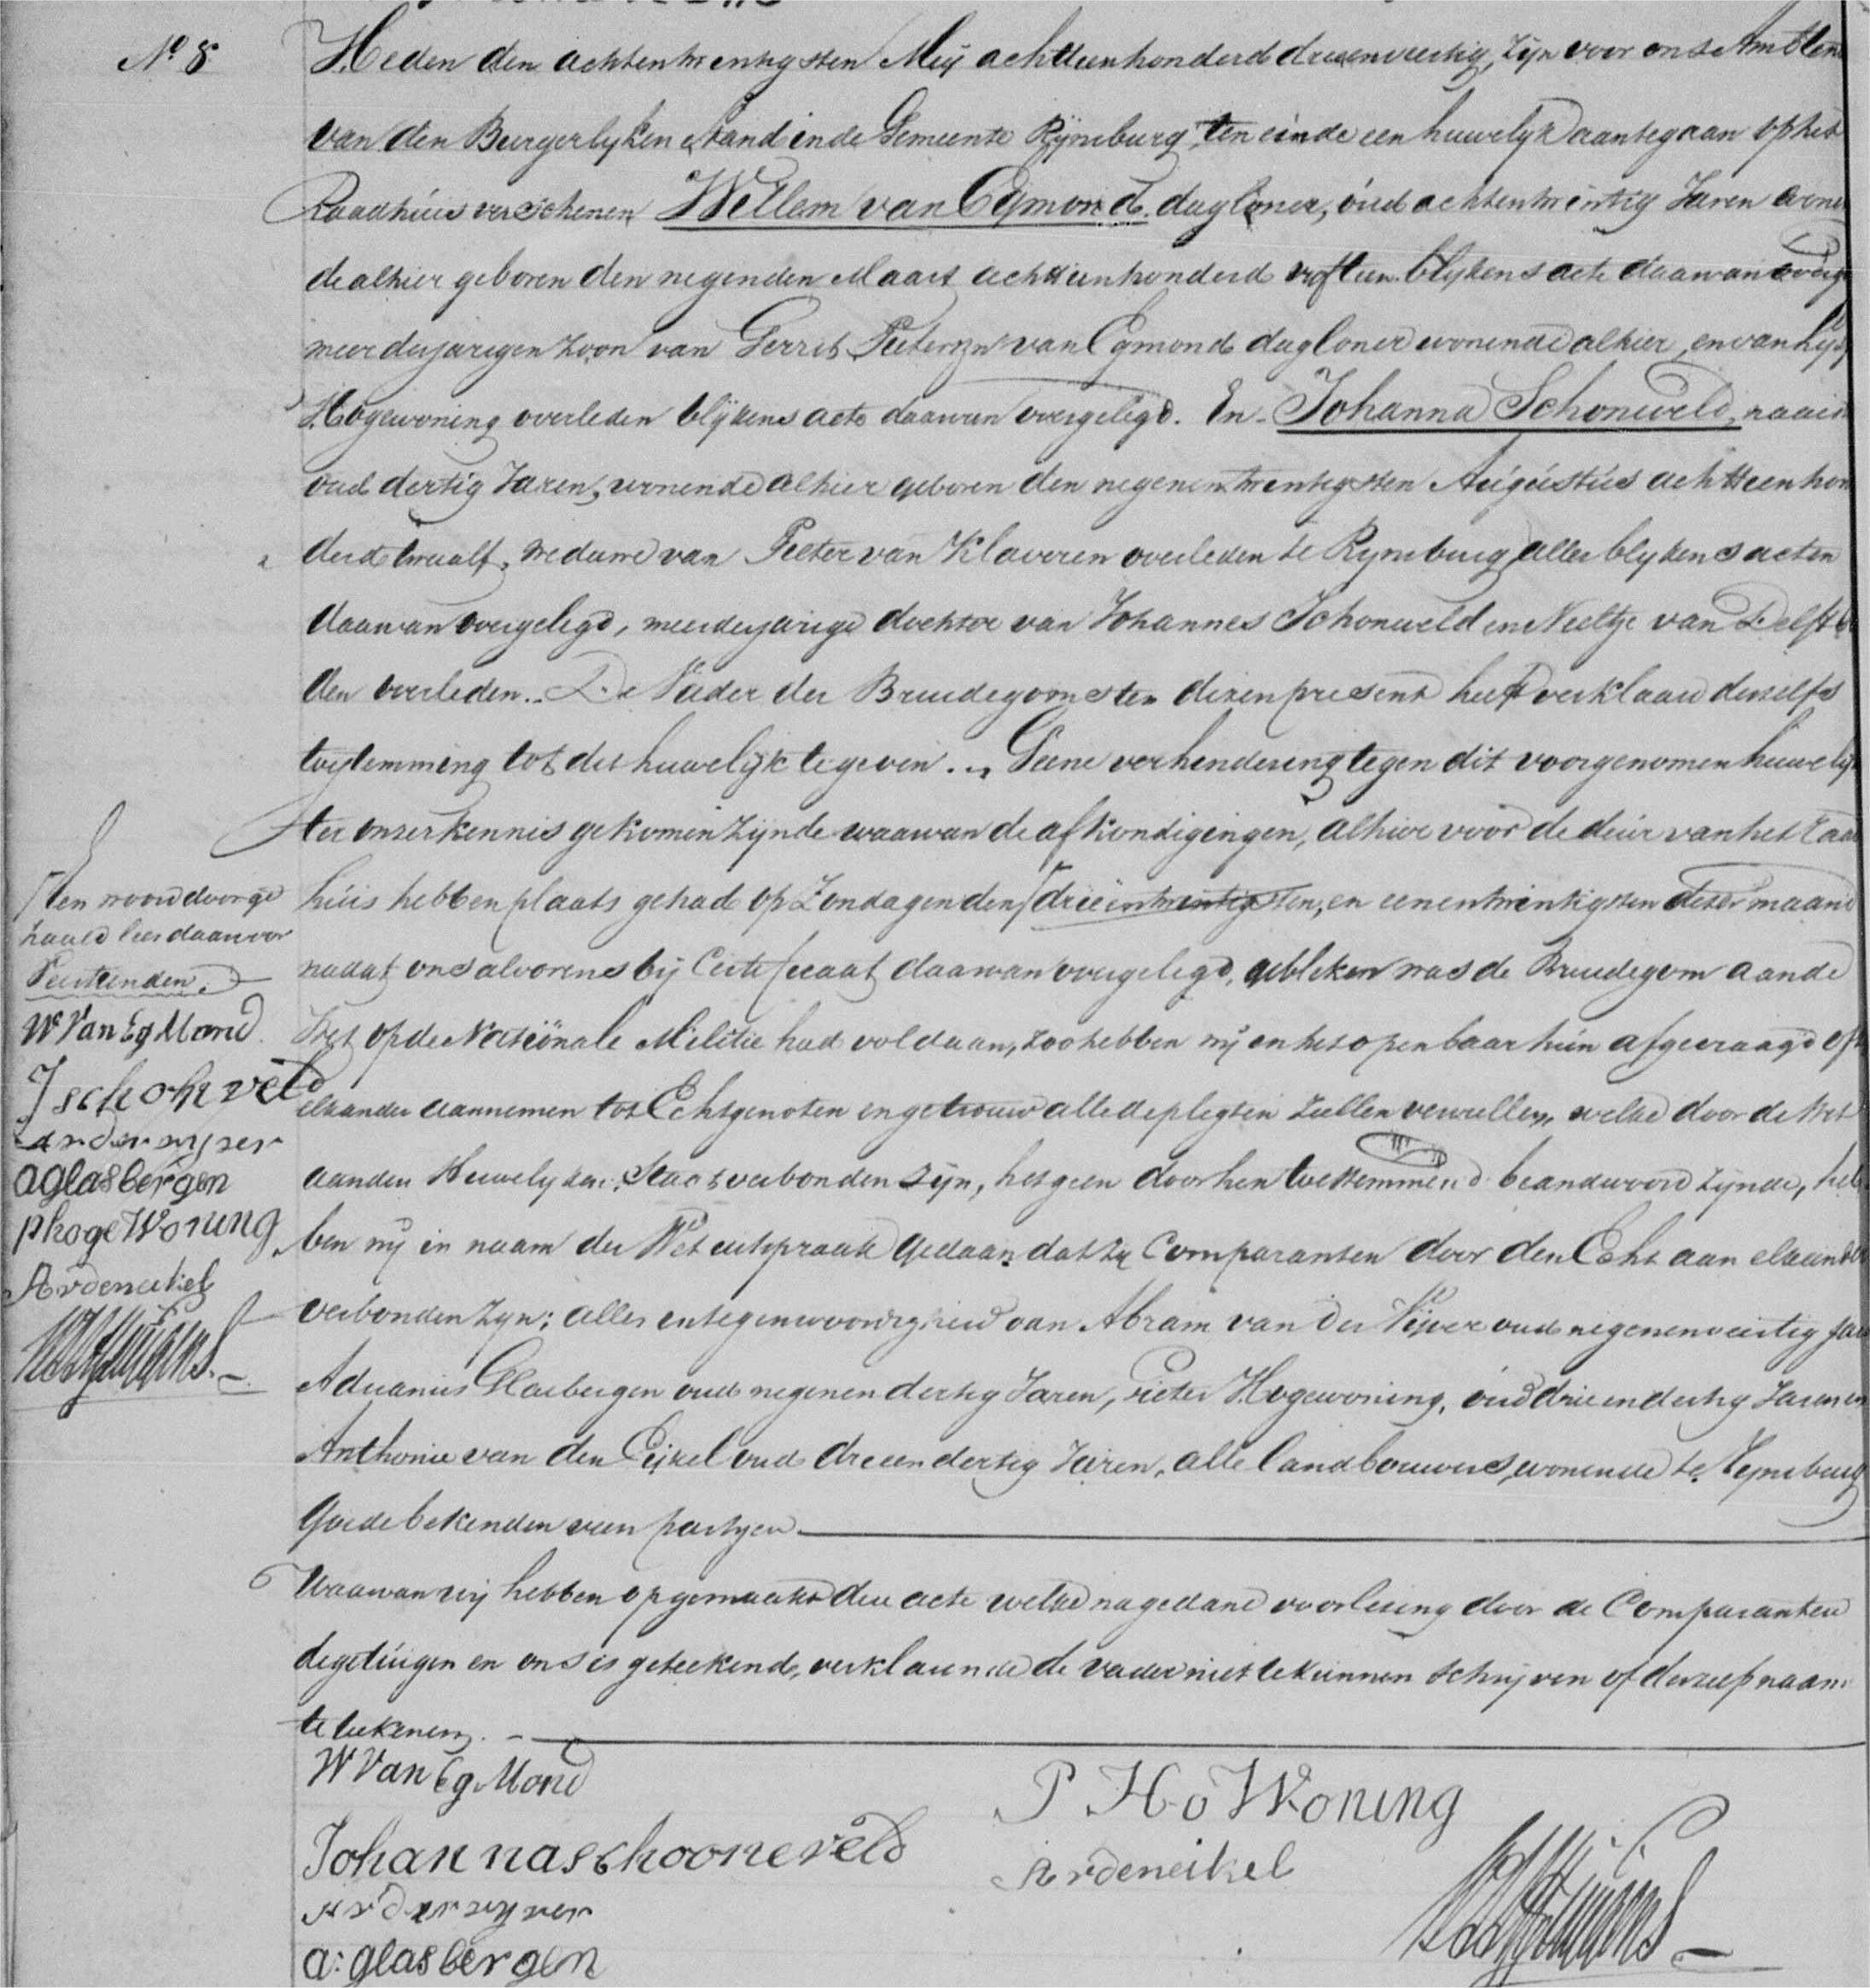 No 8
Heden den achtentwentigsten Meij achttienhonderd drieenveertig, zijn voor ons Ambten
van den Burgerlyken Stand in de Gemeente Rijnsburg, ten einde een huwelyk aantegaan op het
Raadhuis verschenen Willem van Egmond dagloner, oud achtentwintig Jaren wonen
de alhier geboren den negenden Maart achttienhonderd vijftien blykens acte daarvan overge
meerderjarigen zoon van Gerrit Pieterszn van Egmond dagloner wonende alhier, en van
Hogewoning overleden blijkens acte daarvan overgelegd. En Johanna Schonveld, naais
oud dertig Jaren, wonende alhier geboren den negenentwentigsten Augustus achttienhon
derd twaalf, weduwe van Peeter van Klaveren overleden te Rynsburg alles blykens acten
daarvan overgelegd, meerderjarige dochter van Johannes Schonveld en Neeltje van Delft b
den overleden. De Vader der Bruidegom ten dezen present heeft verklaard deszelfs
toestemming tot dit huwelijk te geven. Geene verhindering tegen dit voorgenomen huwelyk
ter onzer kennis gekomen zijnde waarvan de afkondigingen, alhier voor de deur van het raad
huis hebben plaats gehad op Zondagen den drieëntwintigsten, en eenentwintigsten dezer maand
nadat ons alvorens bij Certificaat daarvan overgelegd, gebleken was de Bruidegom aan de
Wet op de Nationale Militie had voldaan, zoo hebben wij en het openbaar hun afgevraagd of
elkander aannemen tot Echtgenoten en getrouw alle de plegten zullen vervullen, welke door de Wet
aan den Huwelyken Staat verbonden zijn, hetgeen door hen toestemmend beandwoord zijnde, heb
ben wij in naam der Wet uitspraak gedaan dat zij Comparanten door den Echt aan elkander
verbonden zyn; alles in tegenwoordigheid van Abram van der Vijver oud negenenveertig jaren
Adrianus Glasbergen oud negenendertig Jaren, Pieter Hogewoning, oud drieendertig Jaren en
Anthonie van den Eijkel oud drieendertig Jaren, alle landbouwers, wonende te Rynsburg
goede bekenden van partyen
Waarvan wij hebben opgemaakt deze acte welke na gedane voorlezing door de Comparanten
de getuigen en ons is geteekend, verklarende de vader niet te kunnen schrijven of deszelfs naam
te tekenen.
een woord doorge
haald lees daarvoor
Veertienden
W Van Eg Mond
J schonveld
Avdervyver
A glasbergen
p hoge Woning
Avdeneikel
W Van Eg Mond
Johanna schooneveld
Avdervyver
a: glasbergen
P Ho Woning
Avdeneikel